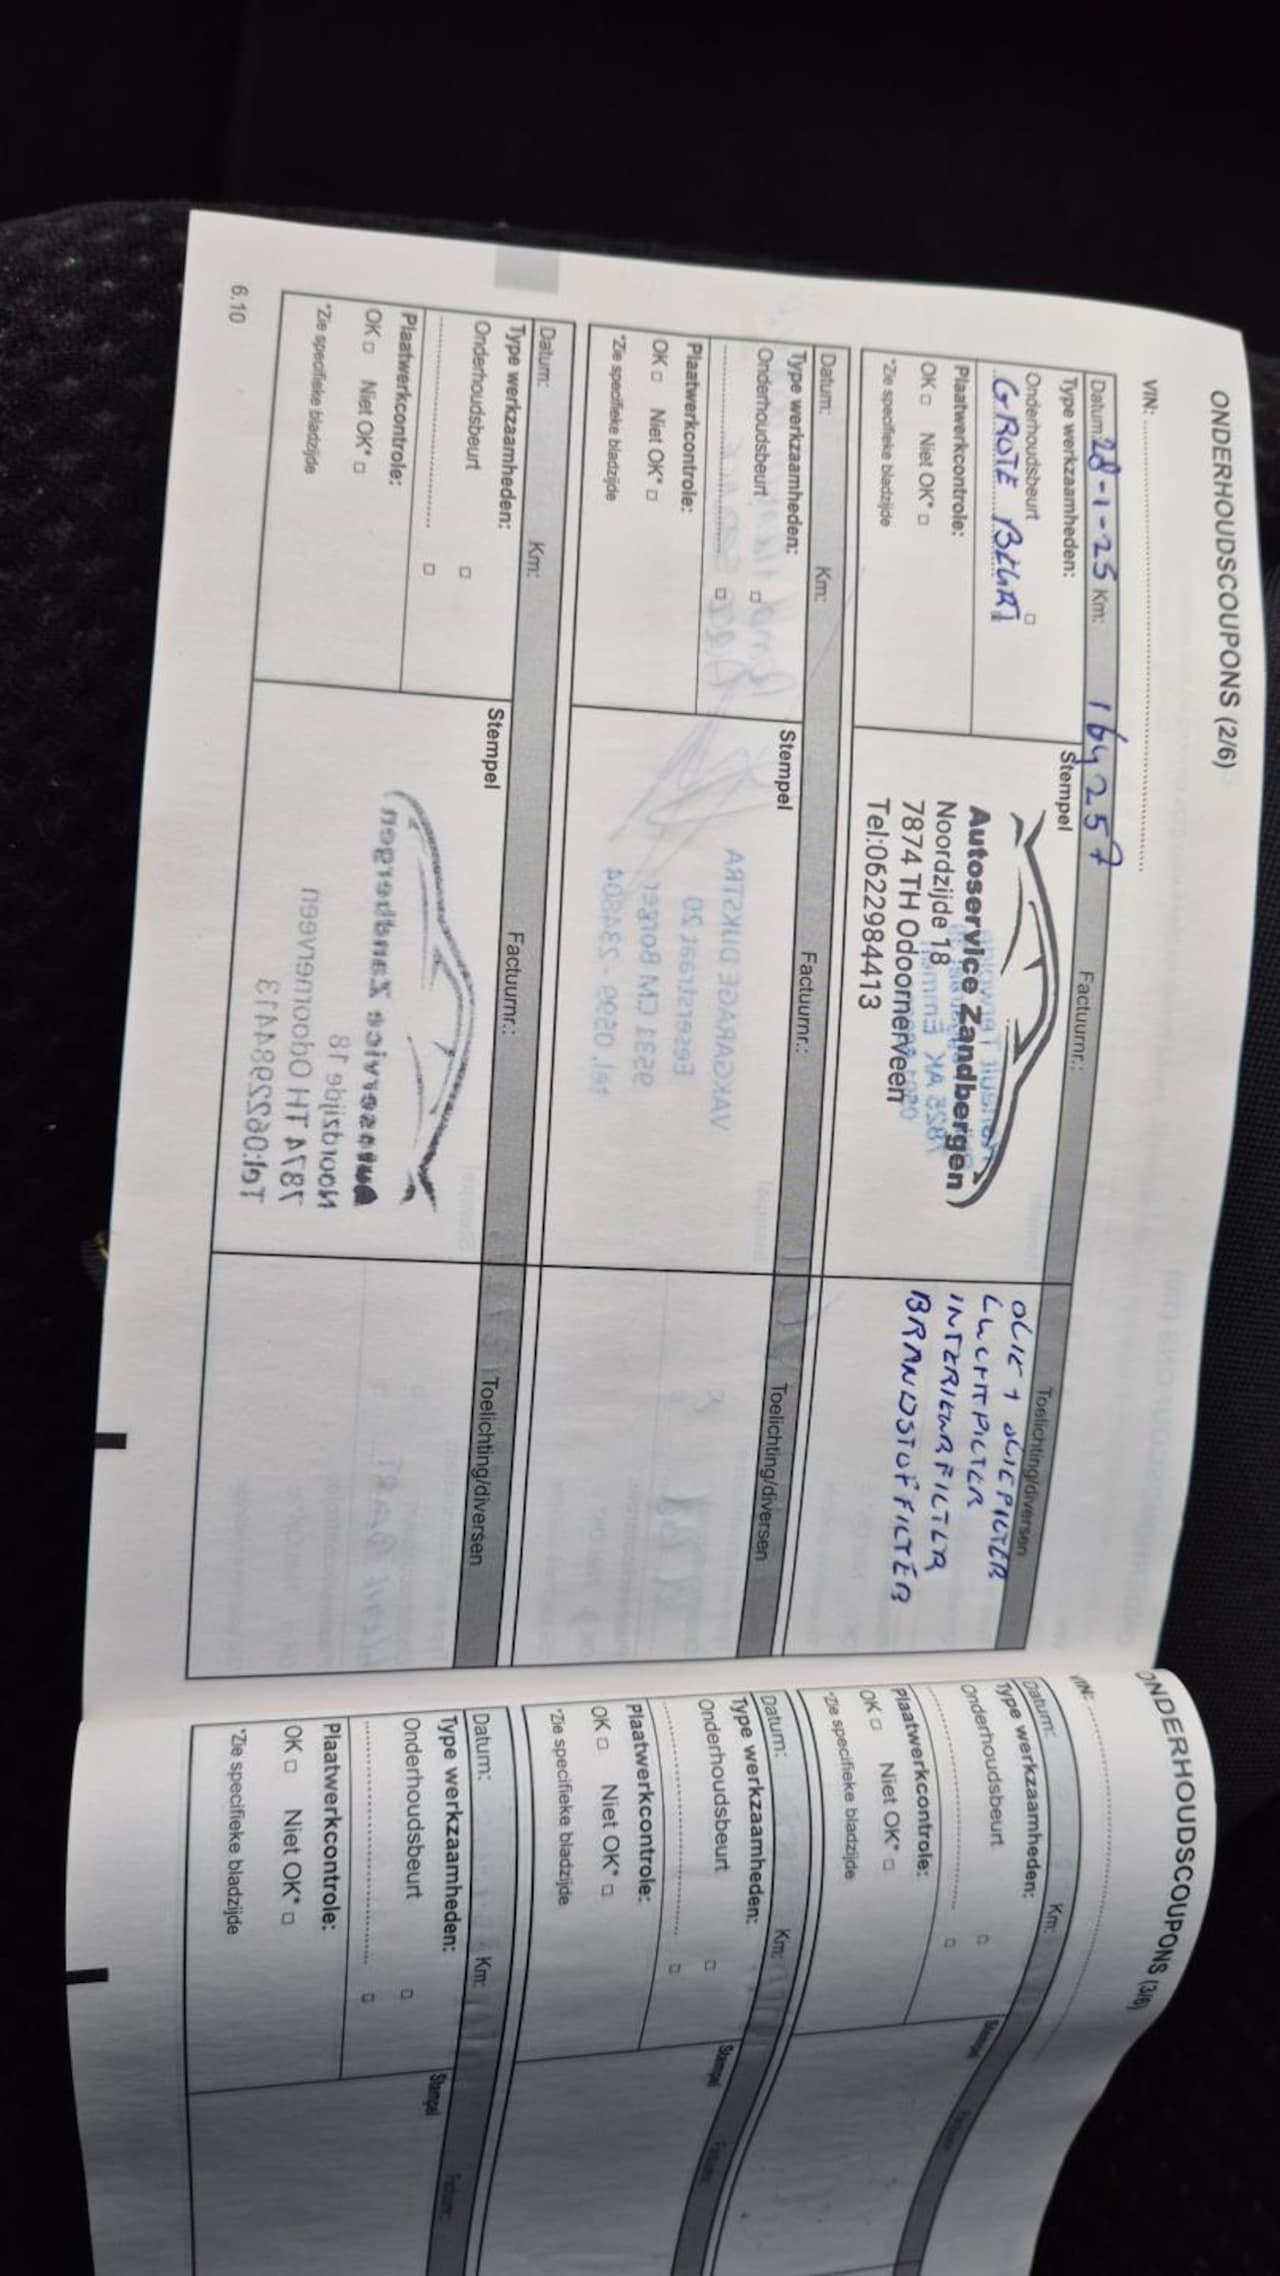 ONDERHOUDSCOUPONS (2/6)
VIN:
Datum: 28-1-25 Km: 164257 Factuurnr.:
Type werkzaamheden:
Onderhoudsbeurt
GROTE BEURT
Plaatwerkcontrole:
OK Niet OK*
*Zie specifieke bladzijde
Stempel
Autoservice Zandbergen
Noordzijde 18
7874 TH Odoornerveen
Tel:0622984413
Toelichting/diversen
OLIE + OLIEFILTER
LUCHTFILTER
INTERIEURFILTER
BRANDSTOFFILTER
Datum: Km: Factuurnr.:
Type werkzaamheden:
Onderhoudsbeurt
Plaatwerkcontrole:
OK Niet OK*
*Zie specifieke bladzijde
Stempel
Toelichting/diversen
Datum: Km: Factuurnr.:
Type werkzaamheden:
Onderhoudsbeurt
Plaatwerkcontrole:
OK Niet OK*
*Zie specifieke bladzijde
Stempel
Toelichting/diversen
6.10
ONDERHOUDSCOUPONS (3/6)
VIN:
Datum: Km:
Type werkzaamheden:
Onderhoudsbeurt
Plaatwerkcontrole:
OK Niet OK*
*Zie specifieke bladzijde
Stempel
Datum: Km:
Type werkzaamheden:
Onderhoudsbeurt
Plaatwerkcontrole:
OK Niet OK*
*Zie specifieke bladzijde
Stempel
Datum: Km:
Type werkzaamheden:
Onderhoudsbeurt
Plaatwerkcontrole:
OK Niet OK*
*Zie specifieke bladzijde
Stempel